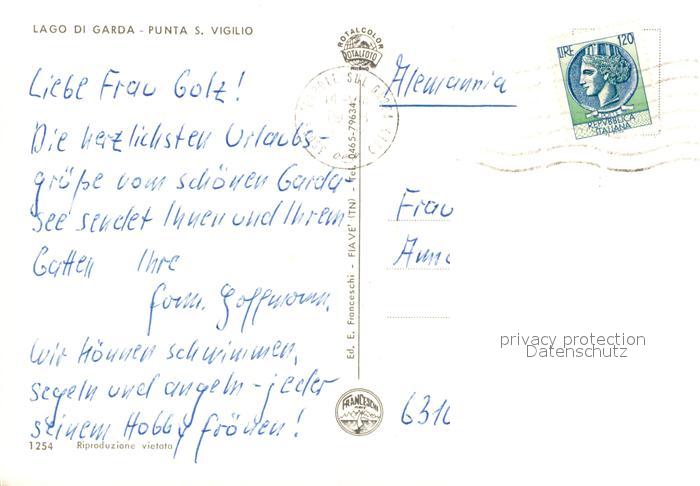 LAGO DI GARDA - PUNTA S. VIGILIO
Liebe Frau Golz!
Die herzlichsten Urlaubs-
grüße vom schönen Garda-
see sendet Ihnen und Ihrem
Gatten Ihre
Fam. Hoffmann.
Wir können schwimmen,
segeln und angeln - jeder
seinem Hobby frönen!
1254 Riproduzione vietata
ROTALCOLOR
ROTALFOTO
MILANO
Ed. E. Franceschi - FIAVE' (TN) - Tel. 0465-79634
FRANCESCHI
Alemannia
LIRE 120
REPVBBLICA
ITALIANA
Frau
privacy protection
Datenschutz